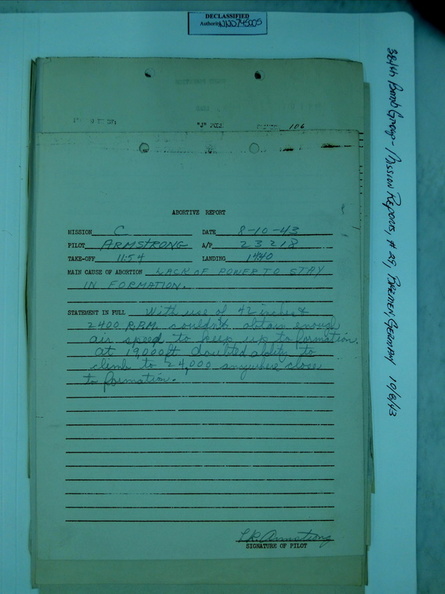 DECLASSIFIED
Authority NND745005
"J" 106
ABORTIVE REPORT
MISSION C DATE 8-10-43
PILOT ARMSTRONG A/P 23218
TAKE-OFF 1154 LANDING 1440
MAIN CAUSE OF ABORTION LACK OF POWER TO STAY
IN FORMATION.
STATEMENT IN FULL With use of 42 inches &
2400 R.P.M. couldn't obtain enough
air speed to keep up to formation.
At 19,000 ft doubted ability to
climb to 24,000 anywhere close
to formation.
SIGNATURE OF PILOT
Bomb Group - Mission Reports, # 29, Bremen Germany 10/8/43